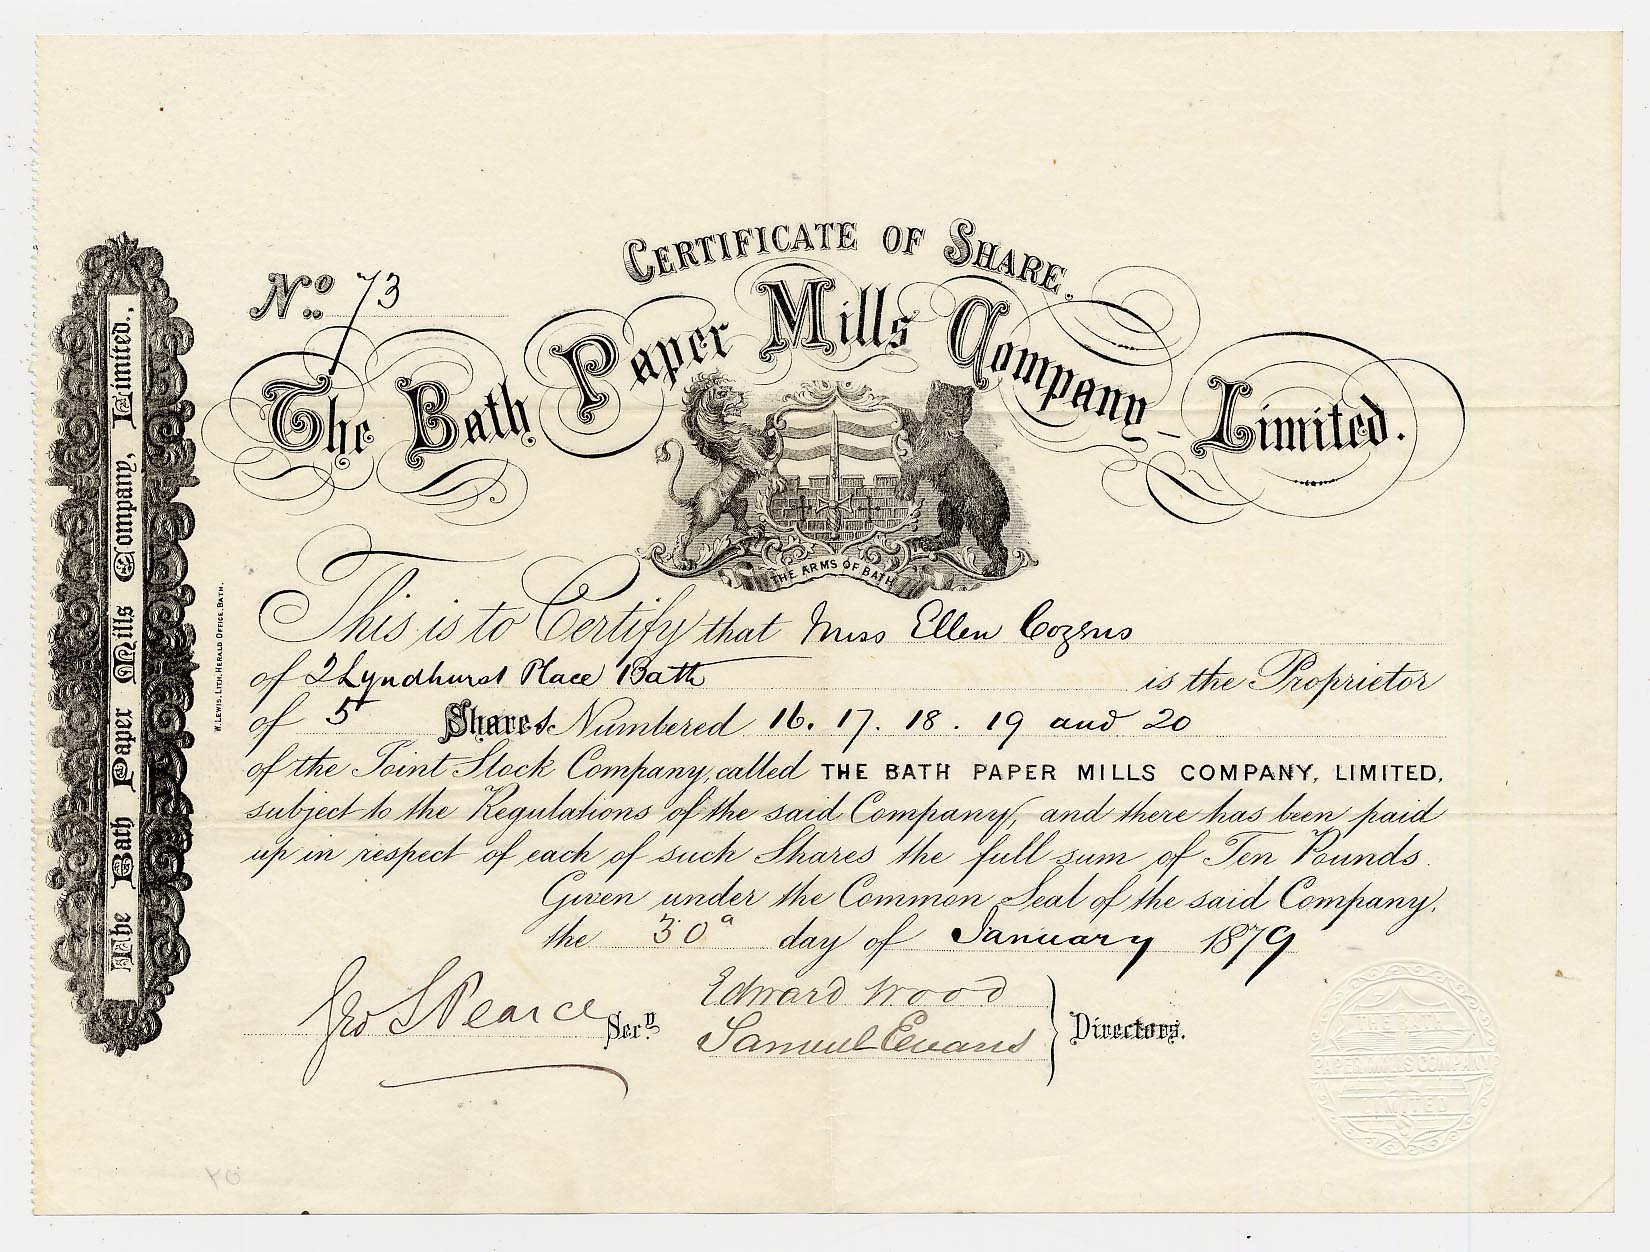 CERTIFICATE OF SHARE.
No. 73
The Bath Paper Mills Company Limited.
THE ARMS OF BATH
This is to Certify that Miss Ellen Cozens
of 2 Lyndhurst Place Bath is the Proprietor
of 5 Shares Numbered 16. 17. 18. 19 and 20
of the Joint Stock Company, called THE BATH PAPER MILLS COMPANY, LIMITED,
subject to the Regulations of the said Company, and there has been paid
up in respect of each of such Shares the full sum of Ten Pounds.
Given under the Common Seal of the said Company,
the 30 day of January 1879
Geo S Pearce Secy.
Edward Wood
Samuel Evans
Directors.
The Bath Paper Mills Company, Limited.,
W. LEWIS, LITH. HERALD OFFICE, BATH.
THE BATH
PAPER MILLS COMPANY
LIMITED